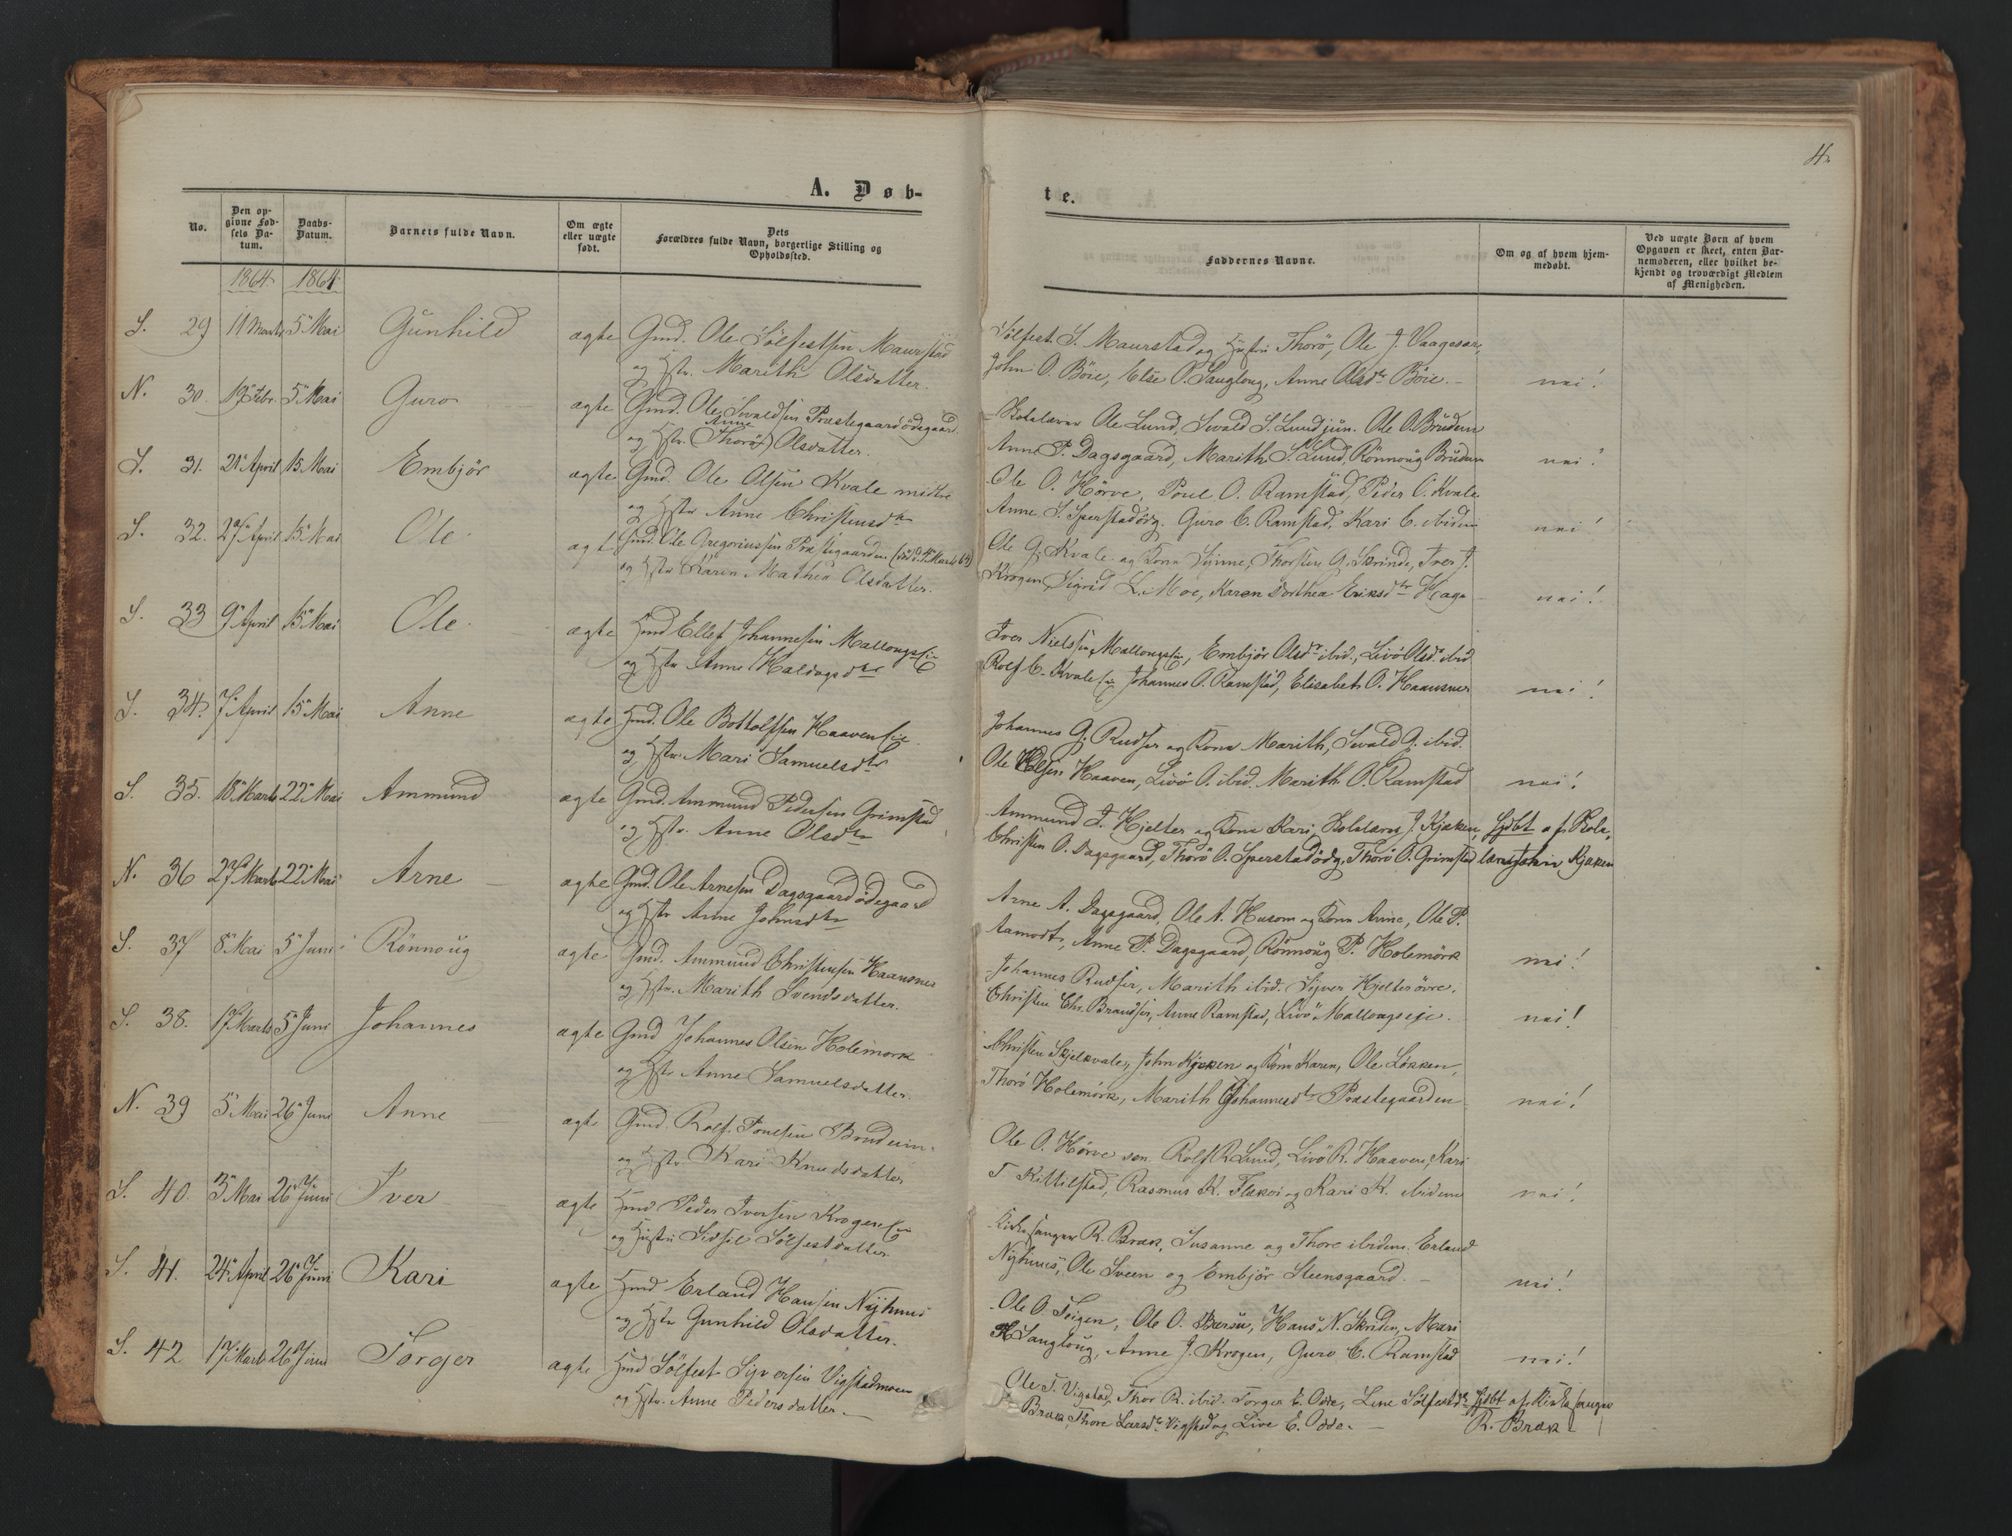 4.
A. Døb-
te.
No.
Den opgivne Fødsels Datum.
Daabs-Datum.
Barnets fulde Navn.
Om ægte eller uægte født.
Dets Forældres fulde Navn, borgerlige Stilling og Opholdssted.
Faddernes Navne.
Om og af hvem hjemmedøbt.
Ved uægte Børn af hvem Opgaven er skeet, enten Barnemoderen, eller hvilket bekjendt og troværdigt Medlem af Menigheden.
1864. 1864.
S. 29 11 Marts 5 Mai Gunhild ægte Gmd. Ole Sølfestsen Maurstad
og Hstr. Marith Olsdatter.
Sølfest S. Maurstad og Hustru Thorø, Ole J. Vaagesar,
John O. Bøie, Else P. Sanglong, Anne Olsdtr Bøie. nei!
N. 30. 19 Febr. 5 Mai Guro ægte Gmd. Ole Sevaldsen Præstegaardsødegaard
og Hstr. Anne (Thorø) Olsdatter.
Skolelærer Ole Lund, Sevald S. Lund jun. Ole O. Brudem
Anne P. Dagsgaard, Marith S. Lund, Rønnoug Brudem nei!
S. 31. 21 April 15 Mai Embjør ægte Gmd. Ole Olsen Kvale midtre
og Hstr Anne Christensdtr
Ole O. Hørve, Poul O. Ramstad, Peder C. Kvale
Anne S. Sperstadødg. Guro C. Ramstad, Kari C. ibidem nei!
S. 32. 27 April 15 Mai Ole ægt Gmd. Ole Gregoriussen Præstegaarden (død d. 4 Marts 64)
og Hstr Karen Mathea Olsdatter.
Ole G. Kvale og Kone Synne, Thorsten G. Skrinde, Iver J.
Krogen, Sigrid L. Moe, Karen Dorthea Eriksdtr Hage nei!
S. 33 9 April 15 Mai Ole ægte Hmd Ellef Johannesen Mallongseie
og Hstr Anne Haldogsdtr
Iver Nielssen Mallongseie, Embjør Olsdtr ibid., Livø Olsd. ibid
Rolf C. Kvalese, Johannes O. Ramstad, Elisabet O. Haansnes nei!
S. 34. 7 April 15 Mai Anne ægte Hmd. Ole Bottolfsen Haaveneie
og Hstr. Mari Samuelsdtr
Johannes G. Rudser og Kone Marith, Sevald G. ibid.
Ole Olsen Haaven, Livø O. ibid. Marith O. Ramstad nei!
S. 35. 18 Marts 22 Mai Ammund ægte Gmd. Ammund Pedersen Grimstad
og Hstr. Anne Olsdtr
Ammund T. Hjelter og Kone Kari, Skolelærer J. Kjæken, hjdbt af Skole-
Christen O. Dagsgaard, Thorø O. Sperstadødg, Thorø O. Grimstad lærer John Kjæken
N. 36 27 Marts 22 Mai Arne ægte Gmd. Ole Arnesen Dagsgaardødegaard
og Hstr Anne Johnsdtr
Arne A. Dagsgaard, Ole A. Husom og Kone Anne, Ole P.
Aamodt, Anne P. Dagsgaard, Rønnoug P. Holemørk nei!
S. 37 8 Mai 5 Juni Rønnoug ægte Gmd. Ammund Christensen Haansnes
og Hstr. Marith Svendsdatter.
Johannes Rudser, Marith ibid. Syver Hjelter øvre,
Christen Chr. Brandser, Anne Ramstad, Livø Mallongseje. nei!
S. 38. 17 Marts 5 Juni Johannes ægte Gmd Johannes Olsen Holemørk
og Hstr Anne Samuelsdatter.
Christen Skjelkvale, John Kjæken og Kone Karen, Ole Løkken,
Thorø Holemørk, Marith Johannesdtr Præstegaarden nei!
N. 39 5 Mai 26 Juni Anne ægte Gmd. Rolf Tonesen Brudeim
og Hstr Kari Knudsdatter
Ole O. Hørve sen. Rolf R. Lund, Livø R. Haaven, Kari
T. Kittilstad, Rasmus K. Flækøi og Kari K. ibidem nei!
S. 40. 3 Mai 26 Juni Iver ægte Hmd Peder Iversen Krogeneie
og Hustru Sidsel Sølfestdatter.
Kirkesanger R. Bræk, Susanne og Thore ibidem. Erland
Nyhuus, Ole Sveen og Embjør Steensgaard. nei!
S. 41. 24 April 26 Juni Kari ægte Hmd Erland Hansen Nyhuus
og Hstr Gunhild Olsdatter.
Ole O. Teigen, Ole O. Bærse, Hans N. Skriden, Mari
H. Sanglong, Anne J. Krogen, Guro C. Ramstad nei!
S. 42 17 Marts 26 Juni Torger ægte Hmd Sølfest Syversen Vigstadmoen
og Hstr. Anne Pedersdatter.
Ole T. Vigstad, Thor R. ibid. Torger E. Odde, Line Sølfestdtr hjdbt af Kirkesanger
Bræk, Thore Larsdtr Vigstad og Live E. Odde. R. Bræk